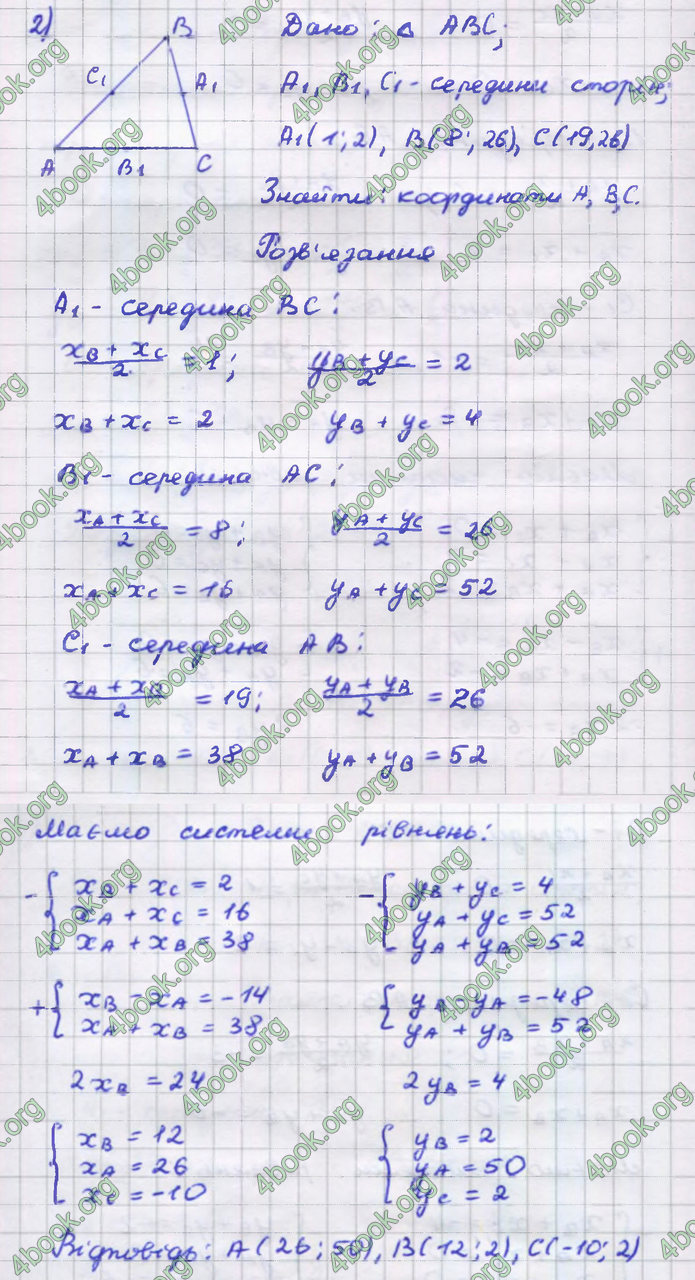 2)
B
C₁
A₁
A
B₁
C
Дано: Δ ABC;
A₁, B₁, C₁ - середини сторін;
A₁(1; 2), B(8; 26), C(19, 26)
Знайти: координати A, B, C.
Розв'язання
A₁ - середина BC:
(x_B + x_C)/2 = 1; (y_B + y_C)/2 = 2
x_B + x_C = 2 y_B + y_C = 4
B₁ - середина AC:
(x_A + x_C)/2 = 8; (y_A + y_C)/2 = 26
x_A + x_C = 16 y_A + y_C = 52
C₁ - середина AB:
(x_A + x_B)/2 = 19; (y_A + y_B)/2 = 26
x_A + x_B = 38 y_A + y_B = 52
Маємо системи рівнень:
- { x_B + x_C = 2 - { y_B + y_C = 4
x_A + x_C = 16 y_A + y_C = 52
x_A + x_B = 38 y_A + y_B = 52
+ { x_B - x_A = -14 { y_B - y_A = -48
x_A + x_B = 38 y_A + y_B = 52
2x_B = 24 2y_B = 4
{ x_B = 12 { y_B = 2
x_A = 26 y_A = 50
x_C = -10 y_C = 2
Відповідь: A(26; 50), B(12; 2), C(-10; 2)
4book.org